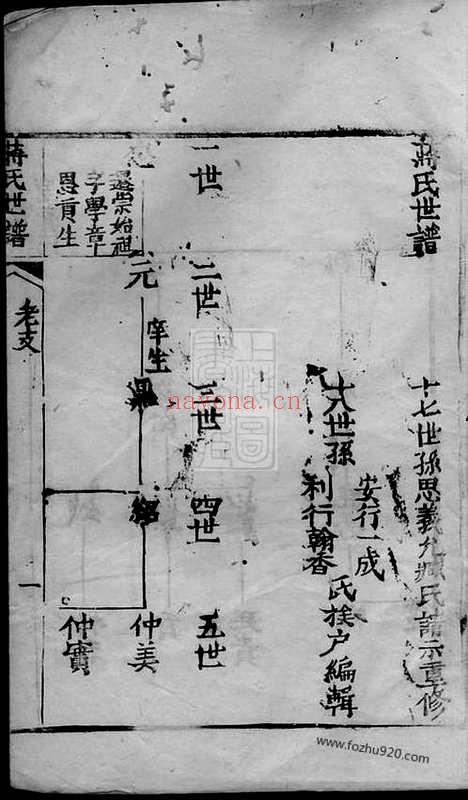 蔣氏世譜
十七世孫思義
氏請示重修
安行一成
十八世孫
利行翰香
氏族户編輯
一世
二世
三世
四世
五世
遷宗始祖
字學章
恩貢生
元
庠生
紹
仲美
仲實
蔣氏世譜
老支
一
nayona.cn
www.fozhu920.com